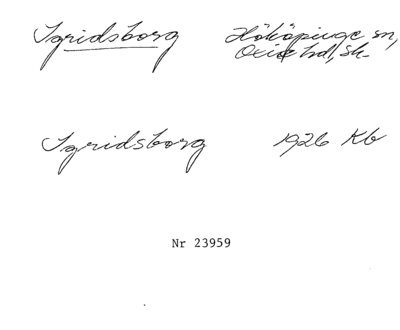 Igridsborg Hököpinge sn,
Oxie hd, Sk.
Igridsborg 1926 Kb
Nr 23959